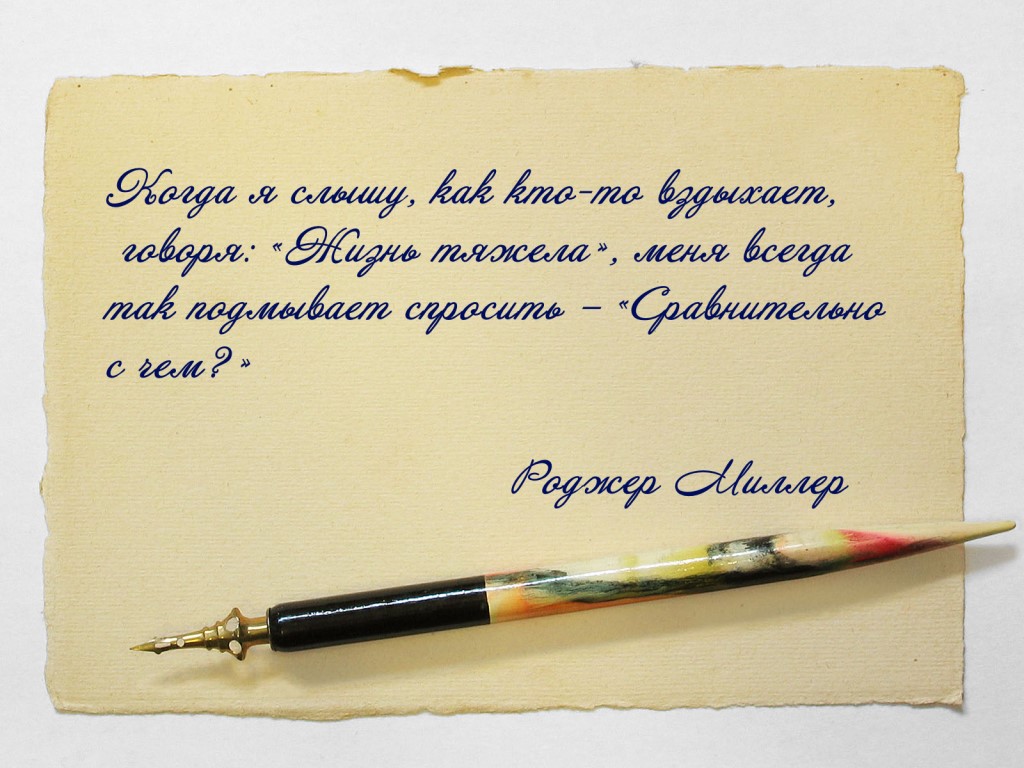 Когда я слышу, как кто-то вздыхает,
говоря: «Жизнь тяжела», меня всегда
так подмывает спросить – «Сравнительно
с чем?»
Роджер Миллер